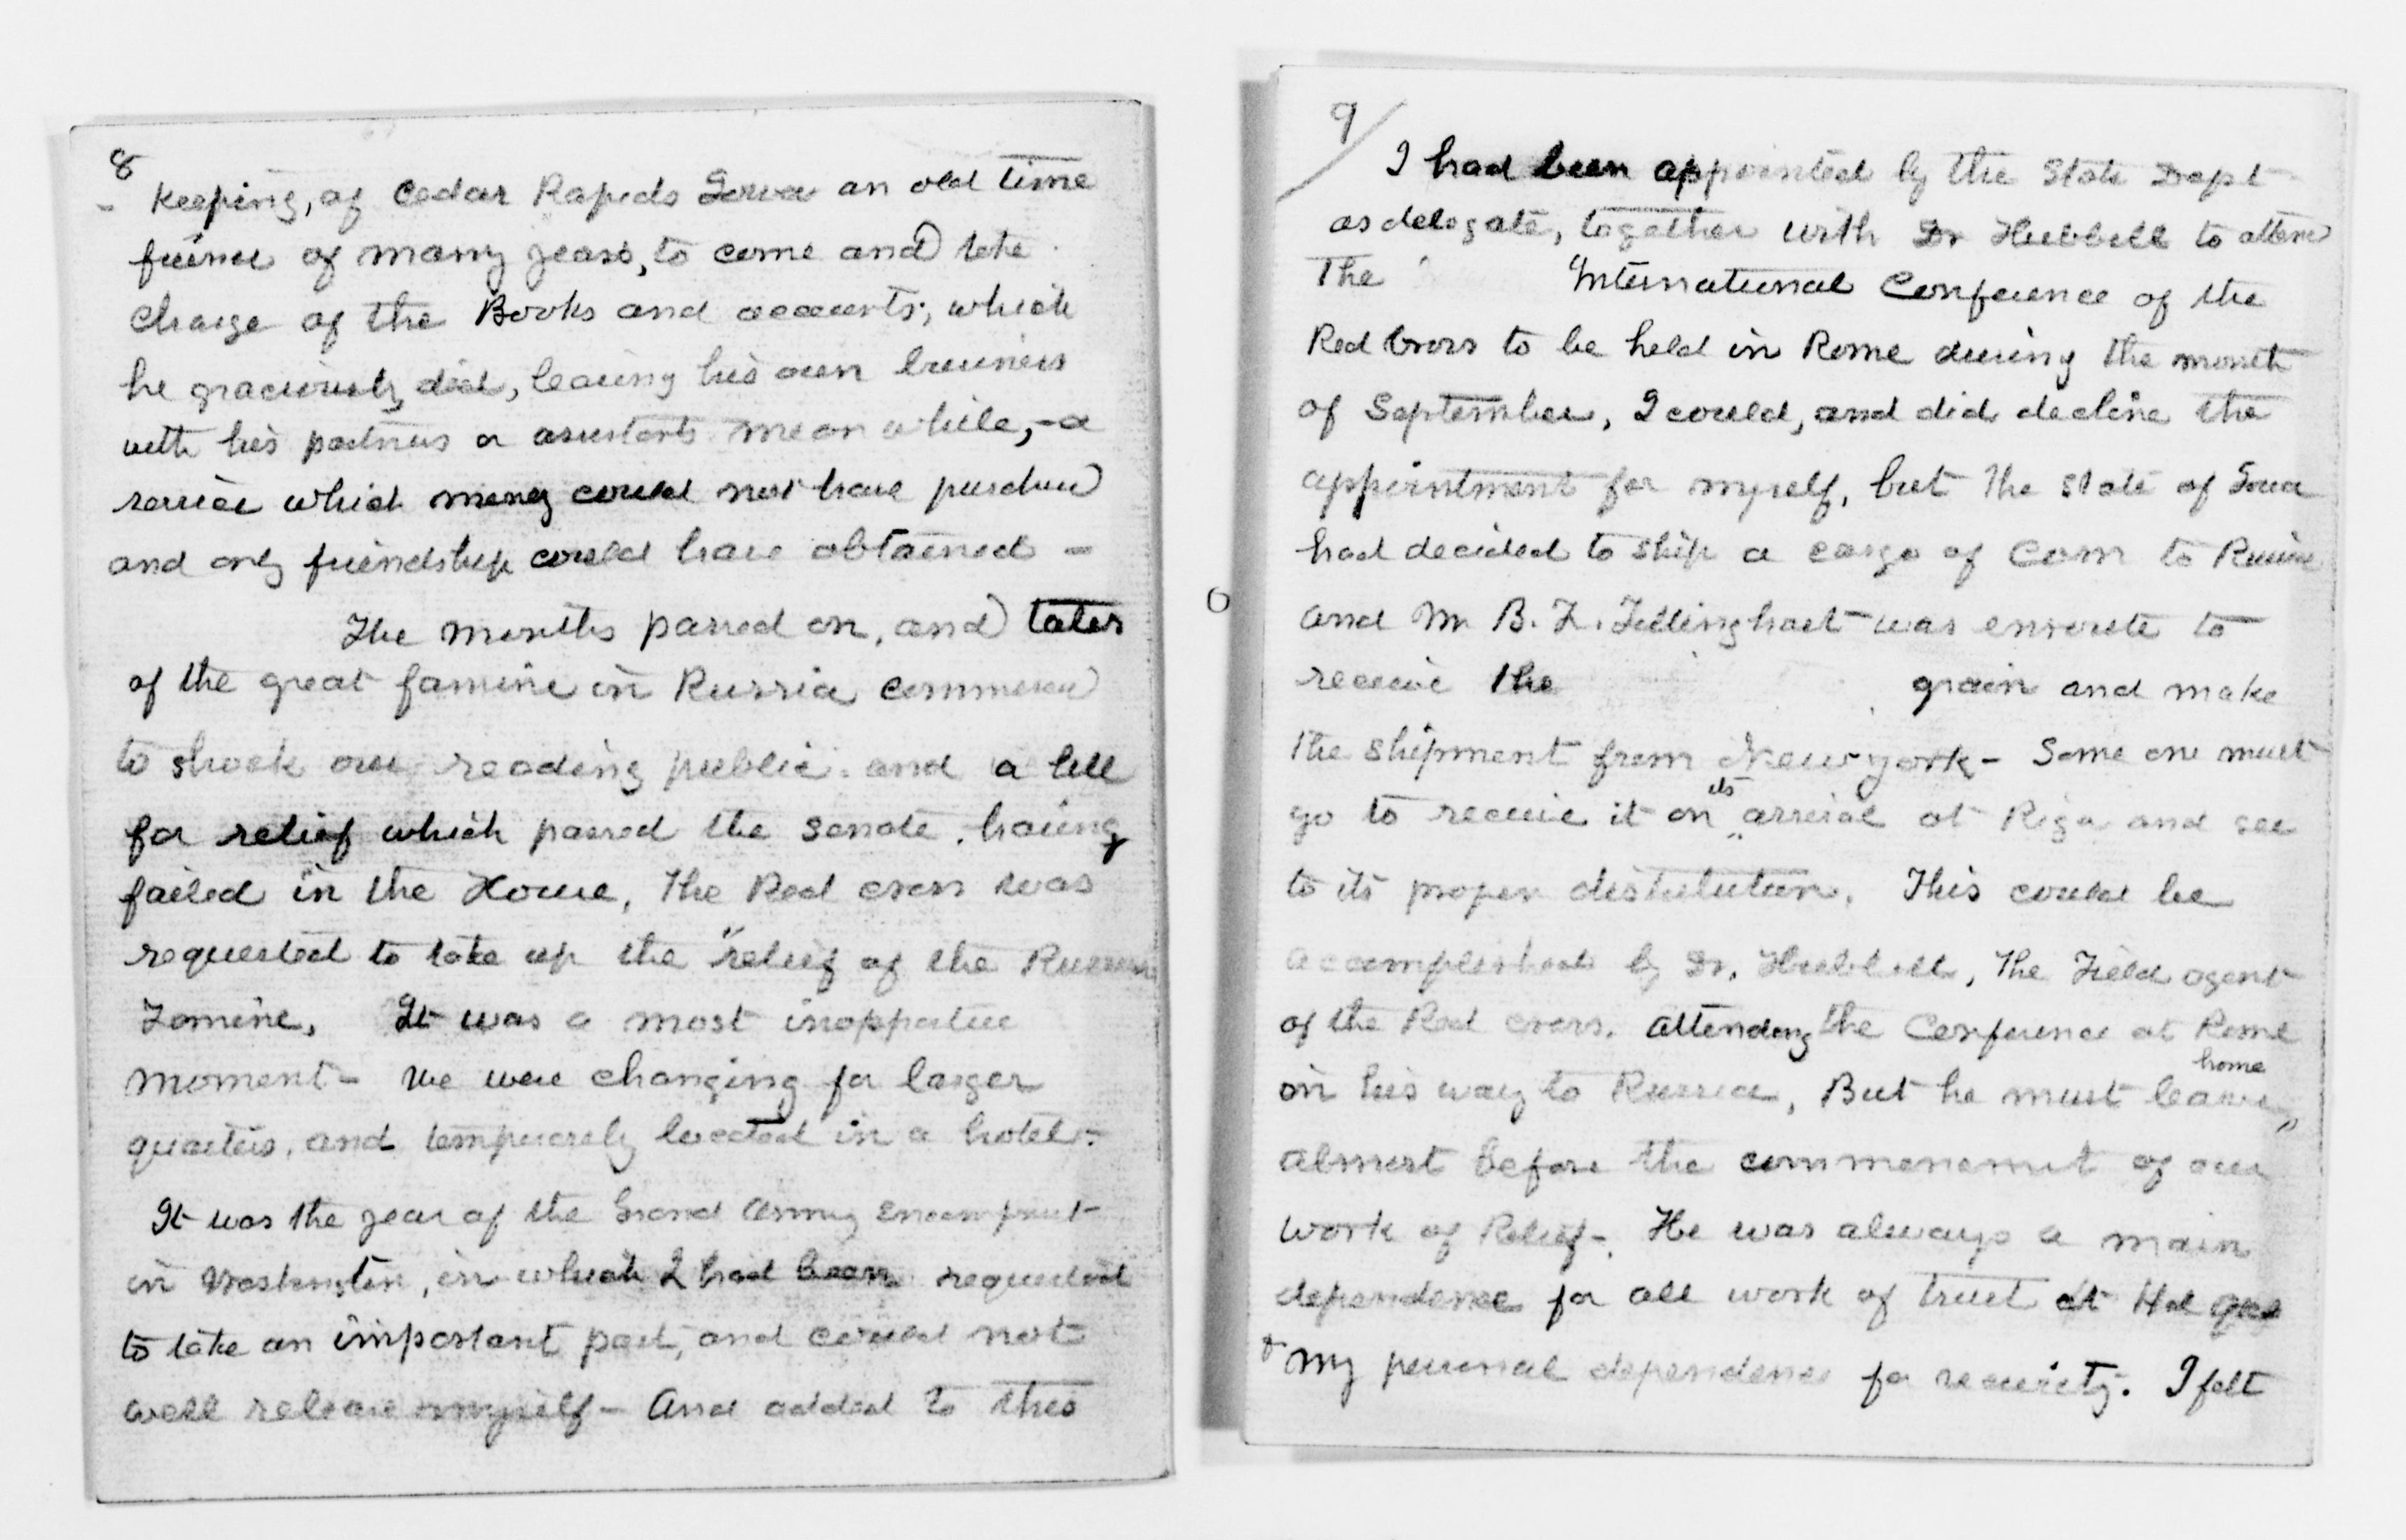 8
- Keeping, of Cedar Rapids Iowa an old time
friend of many years, to come and take
charge of the Books and accounts, which
he graciously did, leaving his own business
with his partners or assistants meanwhile, - a
service which money could not have purchased
and only friendship could have obtained -
The months passed on, and tales
of the great famine in Russia commenced
to shock our reading public. and a bill
for relief which passed the Senate, having
failed in the House, The Red Cross was
requested to take up the "relief of the Russian
Famine. It was a most inopportune
moment - We were changing for larger
quarters, and temporarily located in a hotel -
It was the year of the Grand Army Encampment
in Washington, in which I had been requested
to take an important part, and could not
well release myself - And added to this
9/
I had been appointed by the State Dept
as delegate, together with Dr Hubbell to attend
The International Conference of the
Red Cross to be held in Rome during the month
of September, I could, and did decline the
appointment for myself, but the State of Iowa
had decided to ship a cargo of Corn to Russia
and Mr B. F. Tillinghast was enroute to
receive the grain and make
the shipment from New York - Some one must
go to receive it on its arrival at Riga and see
to its proper distribution. This could be
accomplished by Dr. Hubbell, The Field agent
of the Red Cross. attending the Conference at Rome
on his way to Russia, But he must leave home
almost before the commencement of our
work of Relief -. He was always a main
dependence for all work of trust at Hd qrs
& my personal dependence for security. I felt